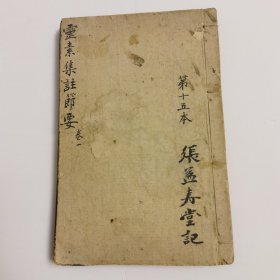 張益壽堂記
第十五本
靈素集註節要
卷一